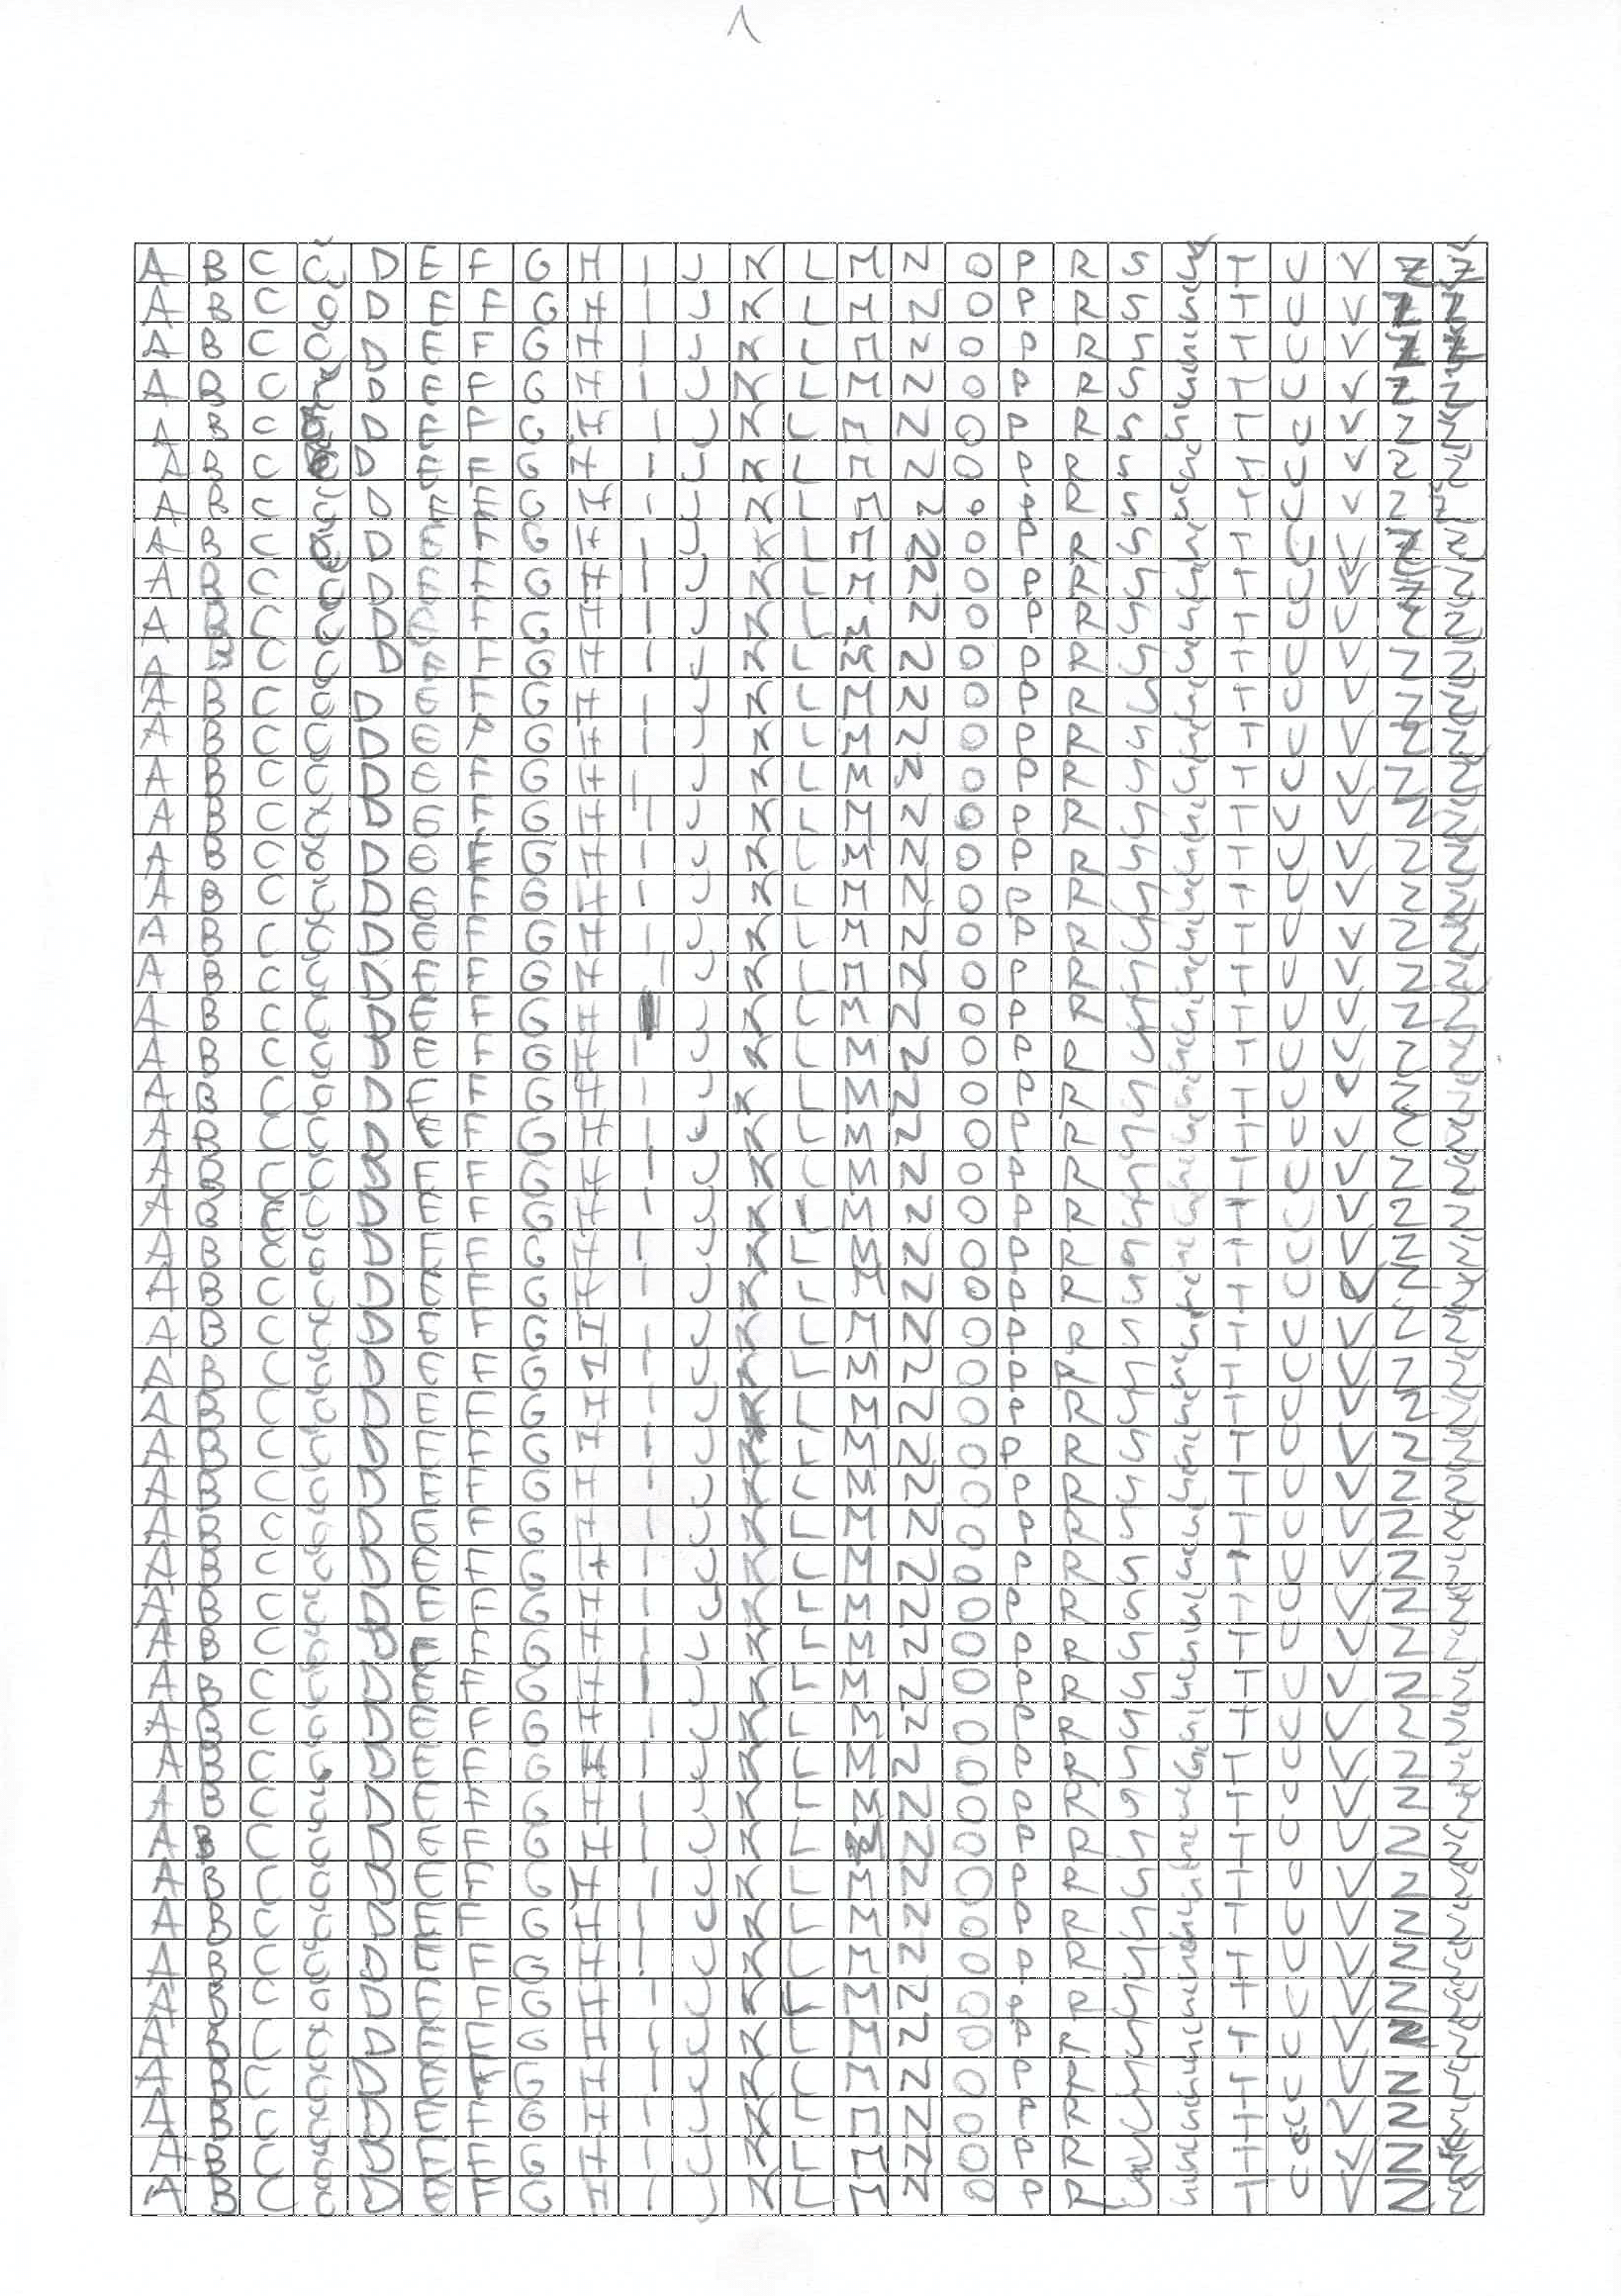 1
A B C Č D E F G H I J K L M N O P R S Š T U V Z Ž
A B C Č D E F G H I J K L M N O P R S Š T U V Z Ž
A B C Č D E F G H I J K L M N O P R S Š T U V Z Ž
A B C Č D E F G H I J K L M N O P R S Š T U V Z Ž
A B C Č D E F G H I J K L M N O P R S Š T U V Z Ž
A B C Č D E F G H I J K L M N O P R S Š T U V Z Ž
A B C Č D E F G H I J K L M N O P R S Š T U V Z Ž
A B C Č D E F G H I J K L M N O P R S Š T U V Z Ž
A B C Č D E F G H I J K L M N O P R S Š T U V Z Ž
A B C Č D E F G H I J K L M N O P R S Š T U V Z Ž
A B C Č D E F G H I J K L M N O P R S Š T U V Z Ž
A B C Č D E F G H I J K L M N O P R S Š T U V Z Ž
A B C Č D E F G H I J K L M N O P R S Š T U V Z Ž
A B C Č D E F G H I J K L M N O P R S Š T U V Z Ž
A B C Č D E F G H I J K L M N O P R S Š T U V Z Ž
A B C Č D E F G H I J K L M N O P R S Š T U V Z Ž
A B C Č D E F G H I J K L M N O P R S Š T U V Z Ž
A B C Č D E F G H I J K L M N O P R S Š T U V Z Ž
A B C Č D E F G H I J K L M N O P R S Š T U V Z Ž
A B C Č D E F G H I J K L M N O P R S Š T U V Z Ž
A B C Č D E F G H I J K L M N O P R S Š T U V Z Ž
A B C Č D E F G H I J K L M N O P R S Š T U V Z Ž
A B C Č D E F G H I J K L M N O P R S Š T U V Z Ž
A B C Č D E F G H I J K L M N O P R S Š T U V Z Ž
A B C Č D E F G H I J K L M N O P R S Š T U V Z Ž
A B C Č D E F G H I J K L M N O P R S Š T U V Z Ž
A B C Č D E F G H I J K L M N O P R S Š T U V Z Ž
A B C Č D E F G H I J K L M N O P R S Š T U V Z Ž
A B C Č D E F G H I J K L M N O P R S Š T U V Z Ž
A B C Č D E F G H I J K L M N O P R S Š T U V Z Ž
A B C Č D E F G H I J K L M N O P R S Š T U V Z Ž
A B C Č D E F G H I J K L M N O P R S Š T U V Z Ž
A B C Č D E F G H I J K L M N O P R S Š T U V Z Ž
A B C Č D E F G H I J K L M N O P R S Š T U V Z Ž
A B C Č D E F G H I J K L M N O P R S Š T U V Z Ž
A B C Č D E F G H I J K L M N O P R S Š T U V Z Ž
A B C Č D E F G H I J K L M N O P R S Š T U V Z Ž
A B C Č D E F G H I J K L M N O P R S Š T U V Z Ž
A B C Č D E F G H I J K L M N O P R S Š T U V Z Ž
A B C Č D E F G H I J K L M N O P R S Š T U V Z Ž
A B C Č D E F G H I J K L M N O P R S Š T U V Z Ž
A B C Č D E F G H I J K L M N O P R S Š T U V Z Ž
A B C Č D E F G H I J K L M N O P R S Š T U V Z Ž
A B C Č D E F G H I J K L M N O P R S Š T U V Z Ž
A B C Č D E F G H I J K L M N O P R S Š T U V Z Ž
A B C Č D E F G H I J K L M N O P R S Š T U V Z Ž
A B C Č D E F G H I J K L M N O P R S Š T U V Z Ž
A B C Č D E F G H I J K L M N O P R S Š T U V Z Ž
A B C Č D E F G H I J K L M N O P R S Š T U V Z Ž
A B C Č D E F G H I J K L M N O P R S Š T U V Z Ž